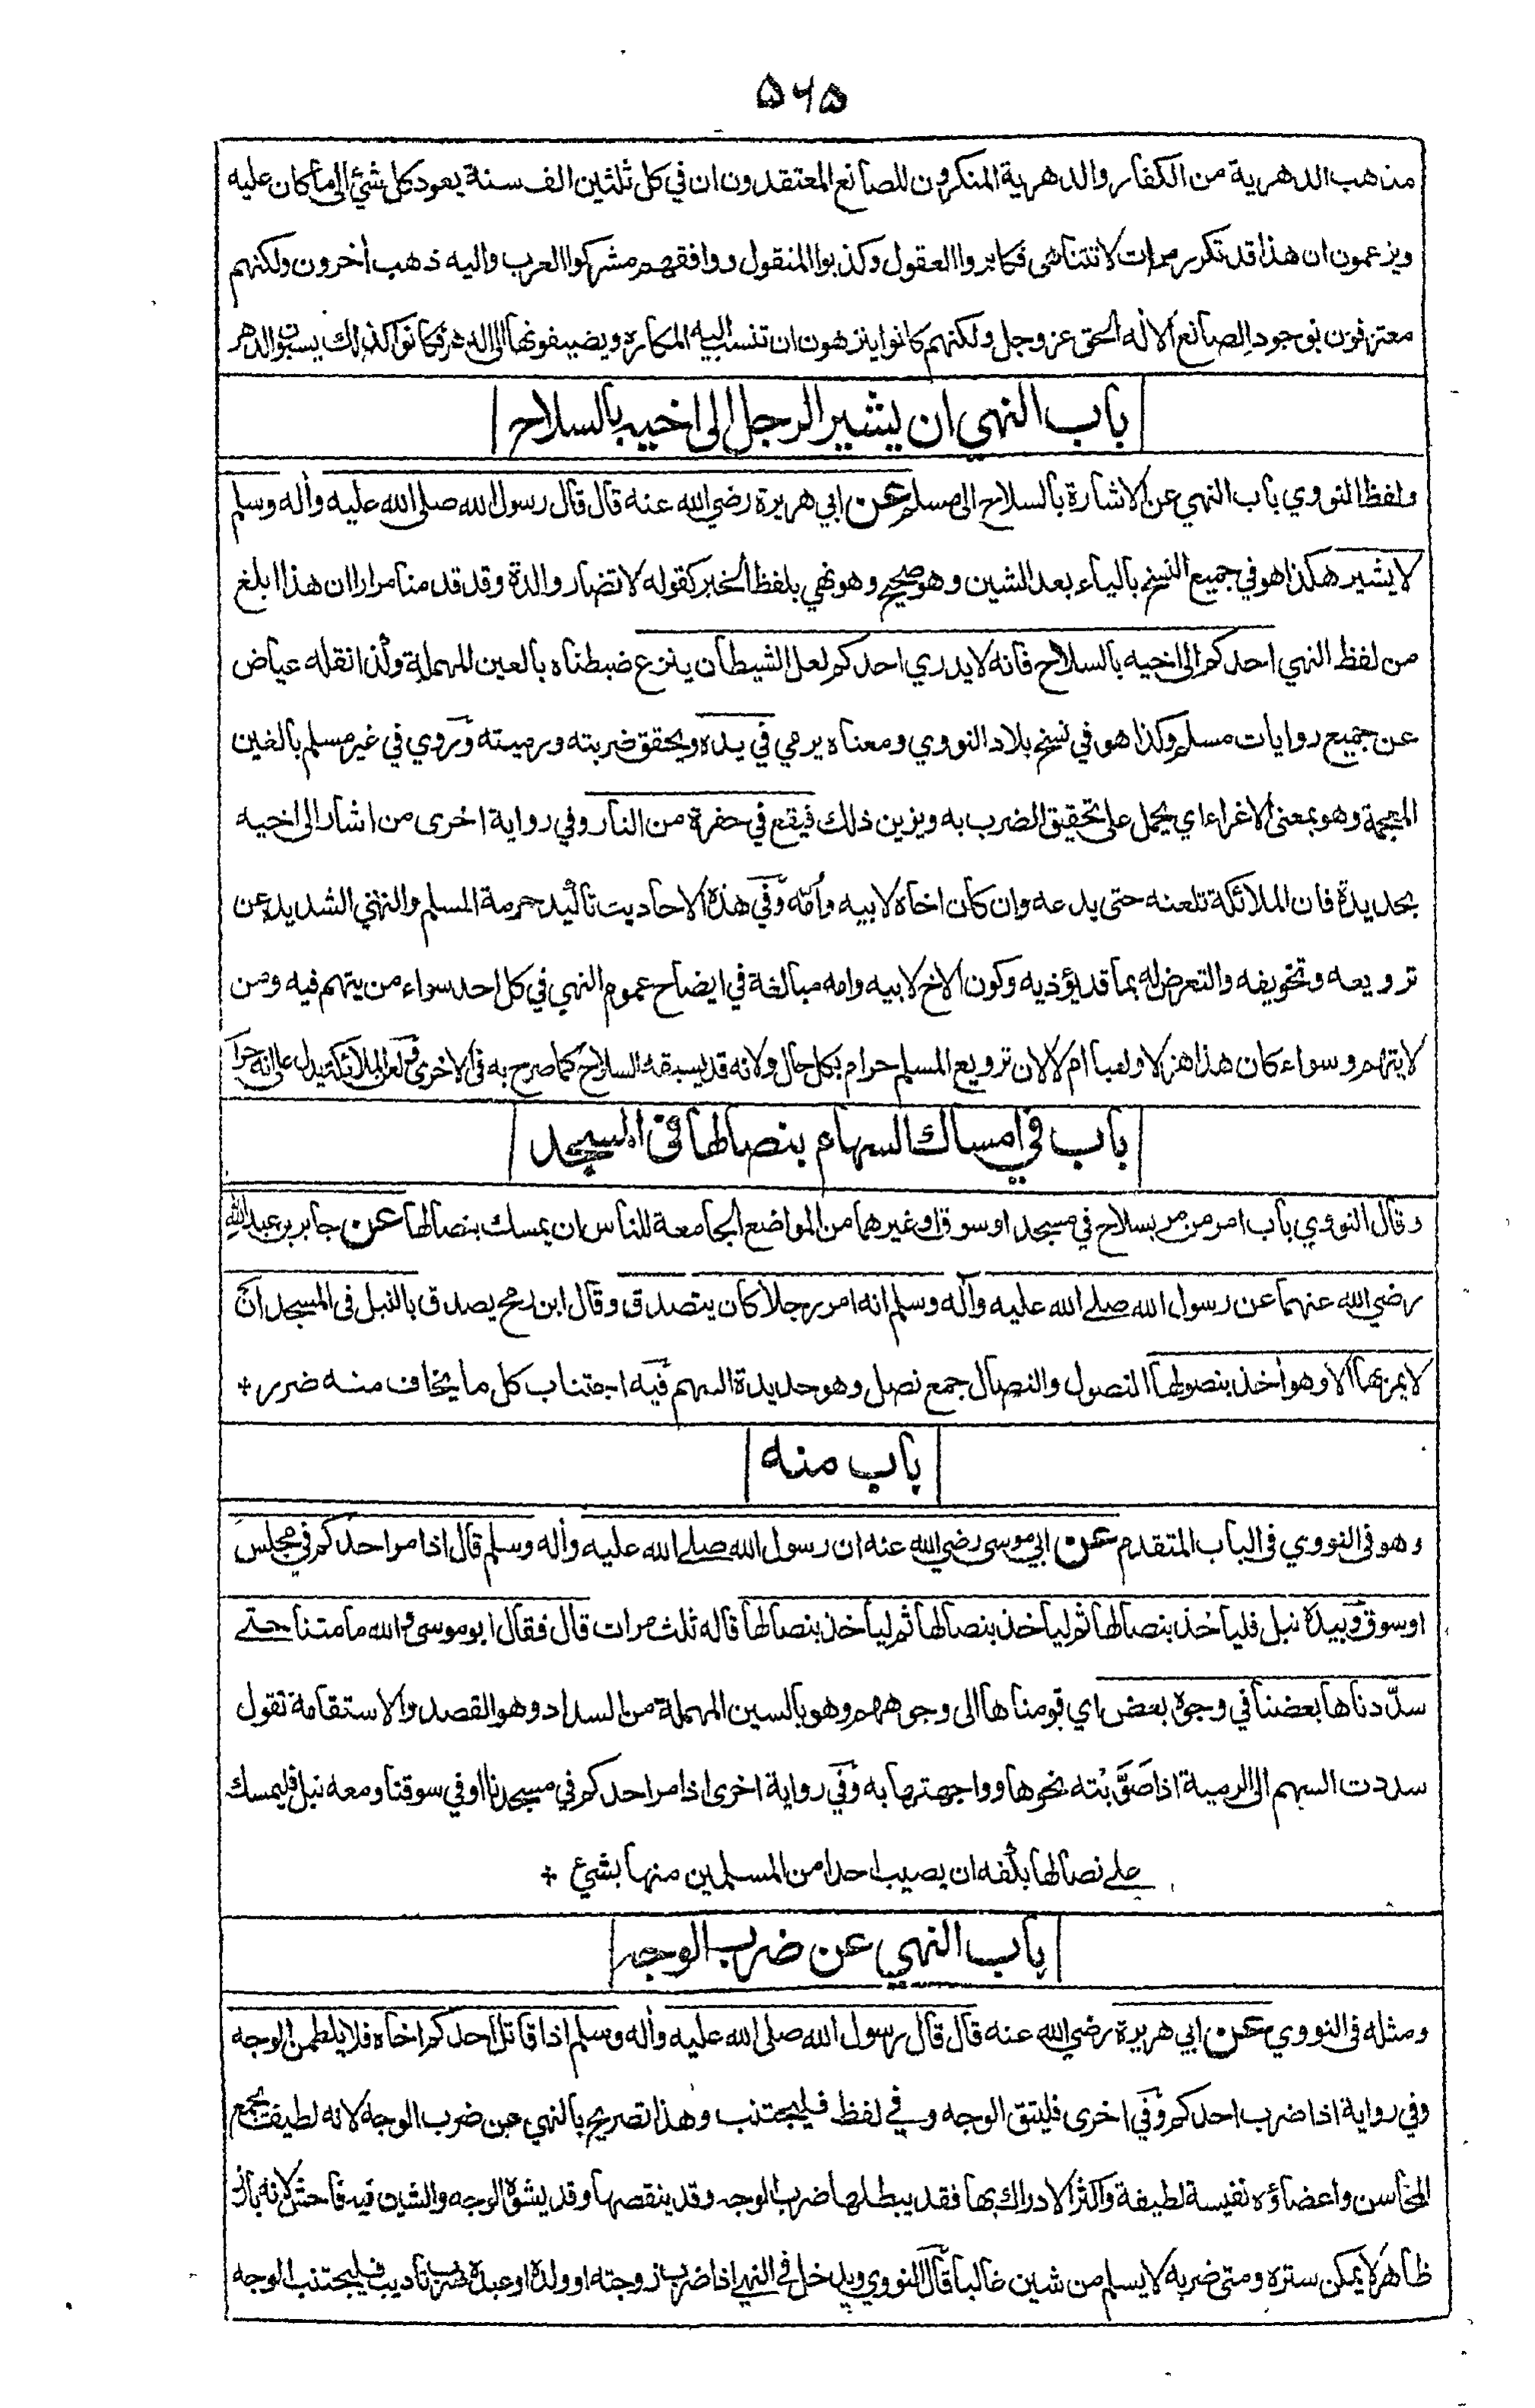 ٥٦٥
مذهب الدهرية من الكفار والدهرية المنكرون للصانع المعتقدون ان في كل ثلثين الف سنة يعود كل شيئ الى ما كان عليه
ويزعمون ان هذا قد تكرر مرات لا تتناهى فكابروا العقول وكذبوا المنقول ووافقهم مشركوا العرب واليه ذهب أخرون ولكنهم
معترفون بوجود الصانع الأله الحق عز وجل ولكنهم كانوا ينزهون ان تنسب اليه المكاره ويضيفونها الى الدهر فكانوا كذلك يسبون الدهر
باب النهي ان يشير الرجل الى اخيه بالسلاح
ولفظ النووي باب النهي عن الاشارة بالسلاح الى مسلم عن ابي هريرة رضي الله عنه قال قال رسول الله صلى الله عليه وأله وسلم
لا يشير هكذا هو في جميع النسخ بالياء بعد الشين وهو صحيح وهو نهي بلفظ الخبر كقوله لا تضار والدة وقد قدمنا مرارا ان هذا ابلغ
من لفظ النهي احدكم الى اخيه بالسلاح فانه لا يدري احدكم لعل الشيطان ينزع ضبطناه بالعين المهملة ولذا نقله عياض
عن جميع روايات مسلم وكذا هو في نسخ بلاد النووي ومعناه يرمي في يده ويحقق ضربته ورميته وروي في غير مسلم بالغين
المعجمة وهو بمعنى الاغراء اي يحمل على تحقيق الضرب به ويزين ذلك فيقع في حفرة من النار وفي رواية اخرى من اشار الى اخيه
بحديدة فان الملائكة تلعنه حتى يدعه وان كان اخاه لابيه وأمّه وفي هذه الاحاديث تأكيد حرمة المسلم والنهي الشديد عن
ترويعه وتخويفه والتعرض له بما قد يؤذيه وكون الاخ لابيه وامه مبالغة في ايضاح عموم النهي في كل احد سواء من يتهم فيه ومن
لا يتهم وسواء كان هذا هزلا ولعبا ام لا لان ترويع المسلم حرام بكل حال ولانه قد يسبقه السلاح كما صرح به في الاخرى ولعن الملائكة يدل على انه حرام
باب في امساك السهام بنصالها في المسجد
وقال النووي باب امر من مر بسلاح في مسجد او سوق او غيرهما من المواضع الجامعة للناس ان يمسك بنصالها عن جابر بن عبد الله
رضي الله عنهما عن رسول الله صلے الله عليه وأله وسلم انه امر رجلا كان يتصدق وقال ابن رمح يصدق بالنبل في المسجد ان
لا يمر بها الا وهو أخذ بنصولها النصول والنصال جمع نصل وهو حديدة السهم فيه اجتناب كل ما يخاف منه ضرر *
باب منه
وهو في النووي في الباب المتقدم عن ابي موسى رضي الله عنه ان رسول الله صلے الله عليه وأله وسلم قال اذا مر احدكم في مجلس
او سوق وبيده نبل فليأخذ بنصالها ثم ليأخذ بنصالها ثم ليأخذ بنصالها قاله ثلث مرات قال فقال ابو موسى والله ما متنا حتے
سدّدناها بعضنا في وجوه بعض اي قومناها الى وجوههم وهو بالسين المهملة من السداد وهو القصد والاستقامة تقول
سددت السهم الى الرمية اذا صَوَّبْته نحوها وواجهتها به وفي رواية اخرى اذا مر احدكم في مسجدنا او في سوقنا ومعه نبل فليمسك
علے نصالها بكفه ان يصيب احدا من المسلمين منها بشيئ *
باب النهي عن ضرب الوجه
ومثله في النووي عن ابي هريرة رضي الله عنه قال قال رسول الله صلى الله عليه وأله وسلم اذا قاتل احدكم اخاه فلا يلطمن الوجه
وفي رواية اذا ضرب احدكم وفي اخرى فليتق الوجه وفي لفظ فليجتنب وهذا تصريح بالنهي عن ضرب الوجه لانه لطيف يجمع
المحاسن واعضاؤه نفيسة لطيفة واكثر الادراك بها فقد يبطلها ضرب الوجه وقد ينقصها وقد يشوه الوجه والشين فيه فاحش لانه بارز
ظاهر لا يمكن ستره ومتى ضربه لا يسلم من شين غالبا قال النووي ويدخل في النهي اذا ضرب زوجته او ولده او عبده ضرب تاديب فليجتنب الوجه